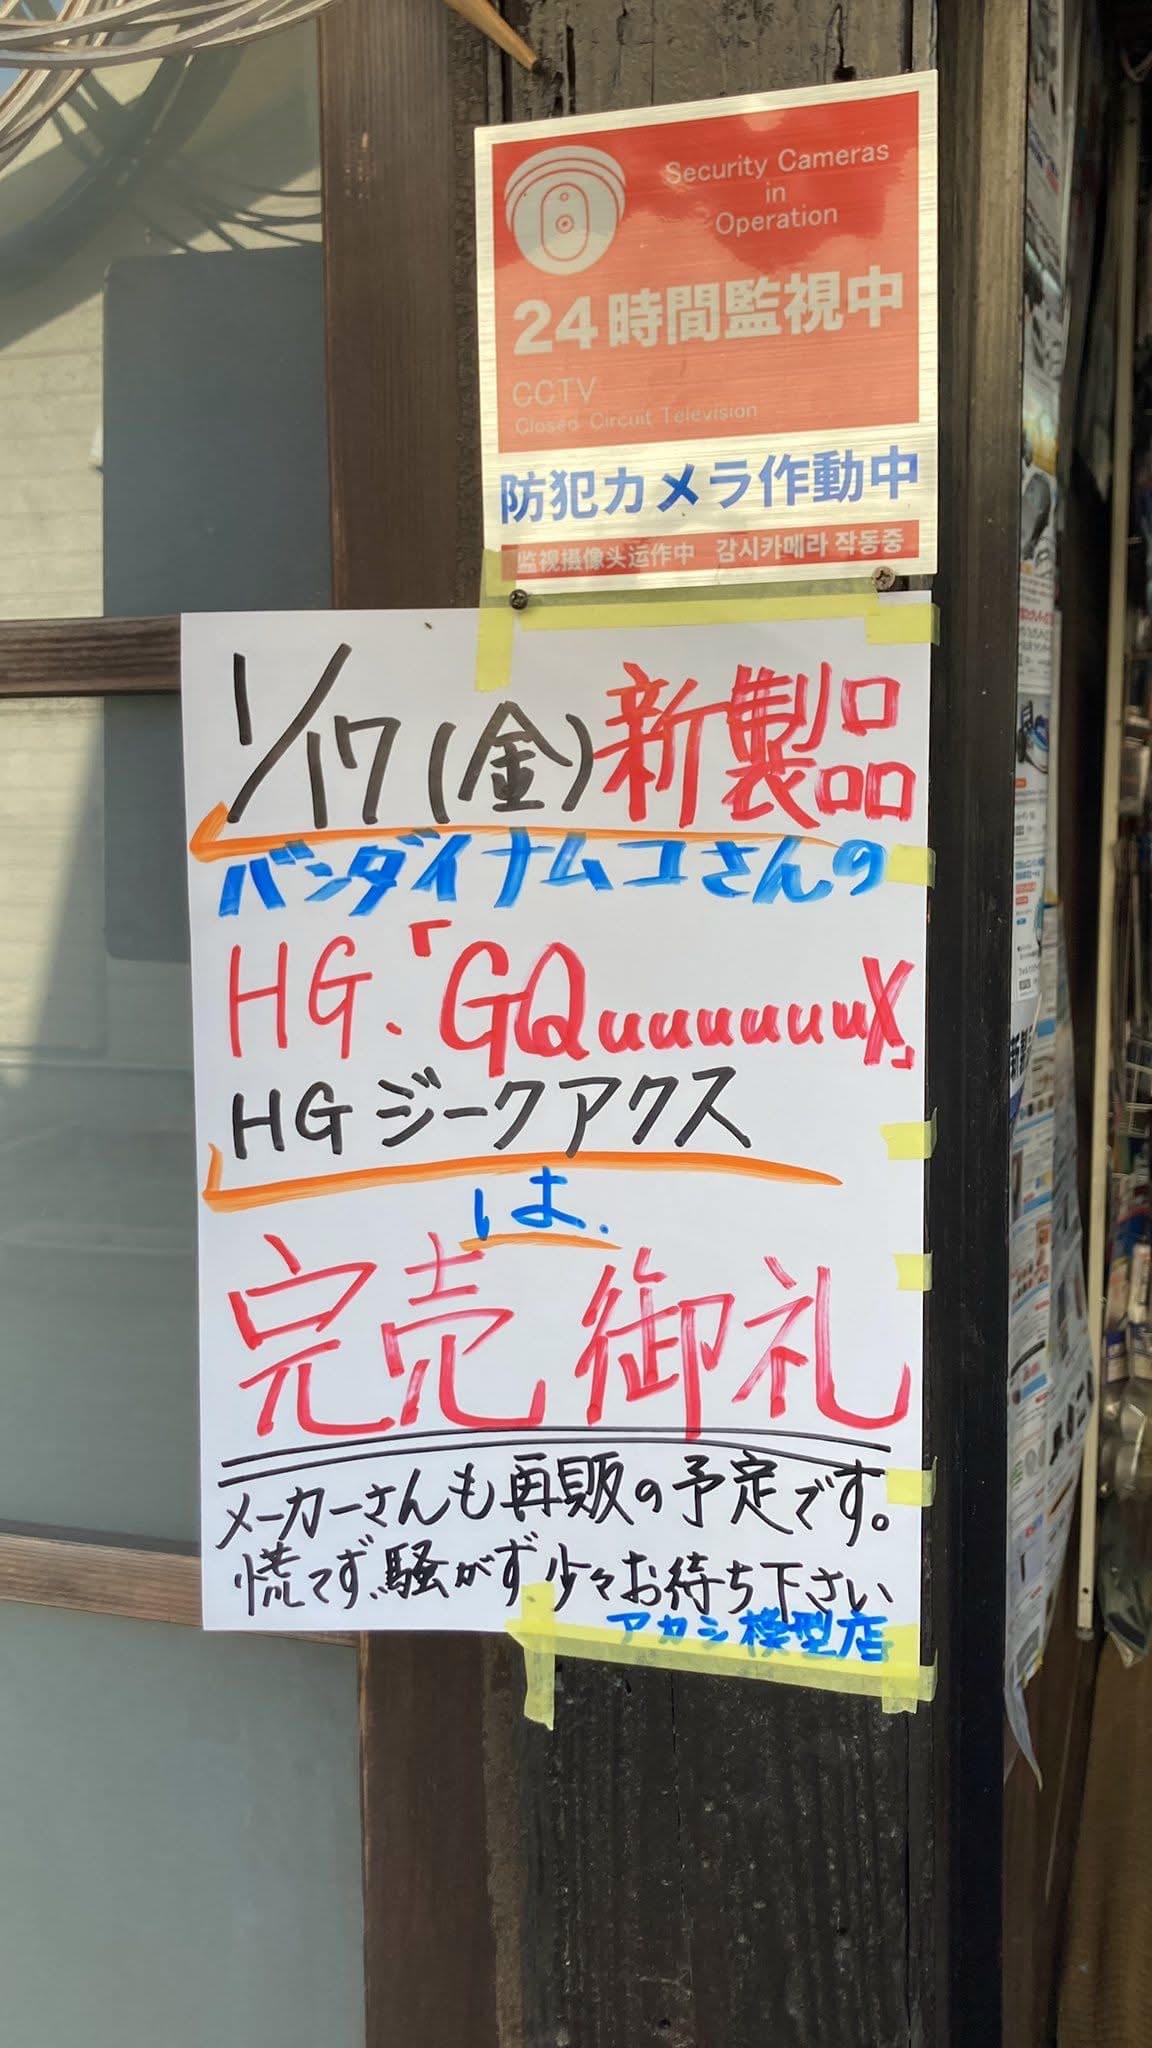 Security Cameras
in
Operation
24時間監視中
CCTV
Closed Circuit Television
防犯カメラ作動中
监视摄像头运作中 감시카메라 작동중
1/17(金)新製品
バンダイナムコさんの
HG.「GQuuuuuuuX」
HGジークアクス
は.
完売御礼
メーカーさんも再販の予定です。
慌てず、騒がず、少々お待ち下さい
アカシ模型店